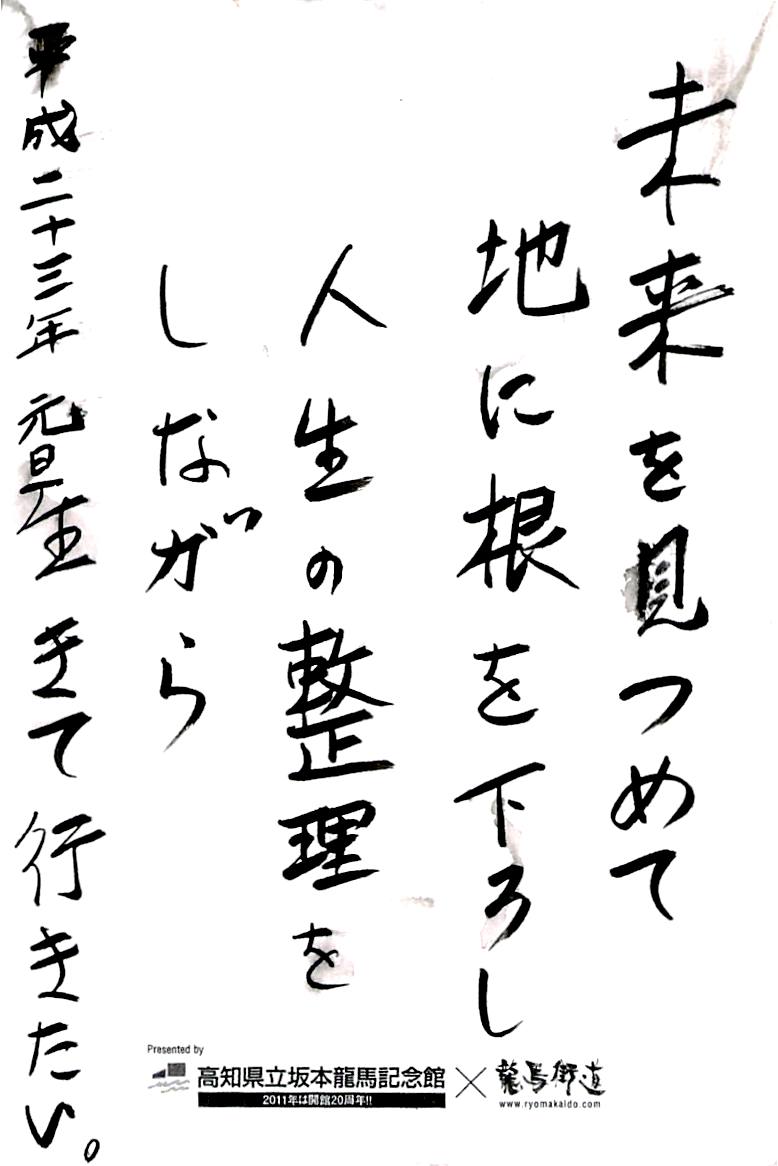 未来を見つめて
地に根を下ろし
人生の整理を
しながら
平成二十三年 元旦 生きて行きたい。
Presented by
高知県立坂本龍馬記念館 × 龍馬街道
2011年は開館20周年!!
www.ryomakaido.com